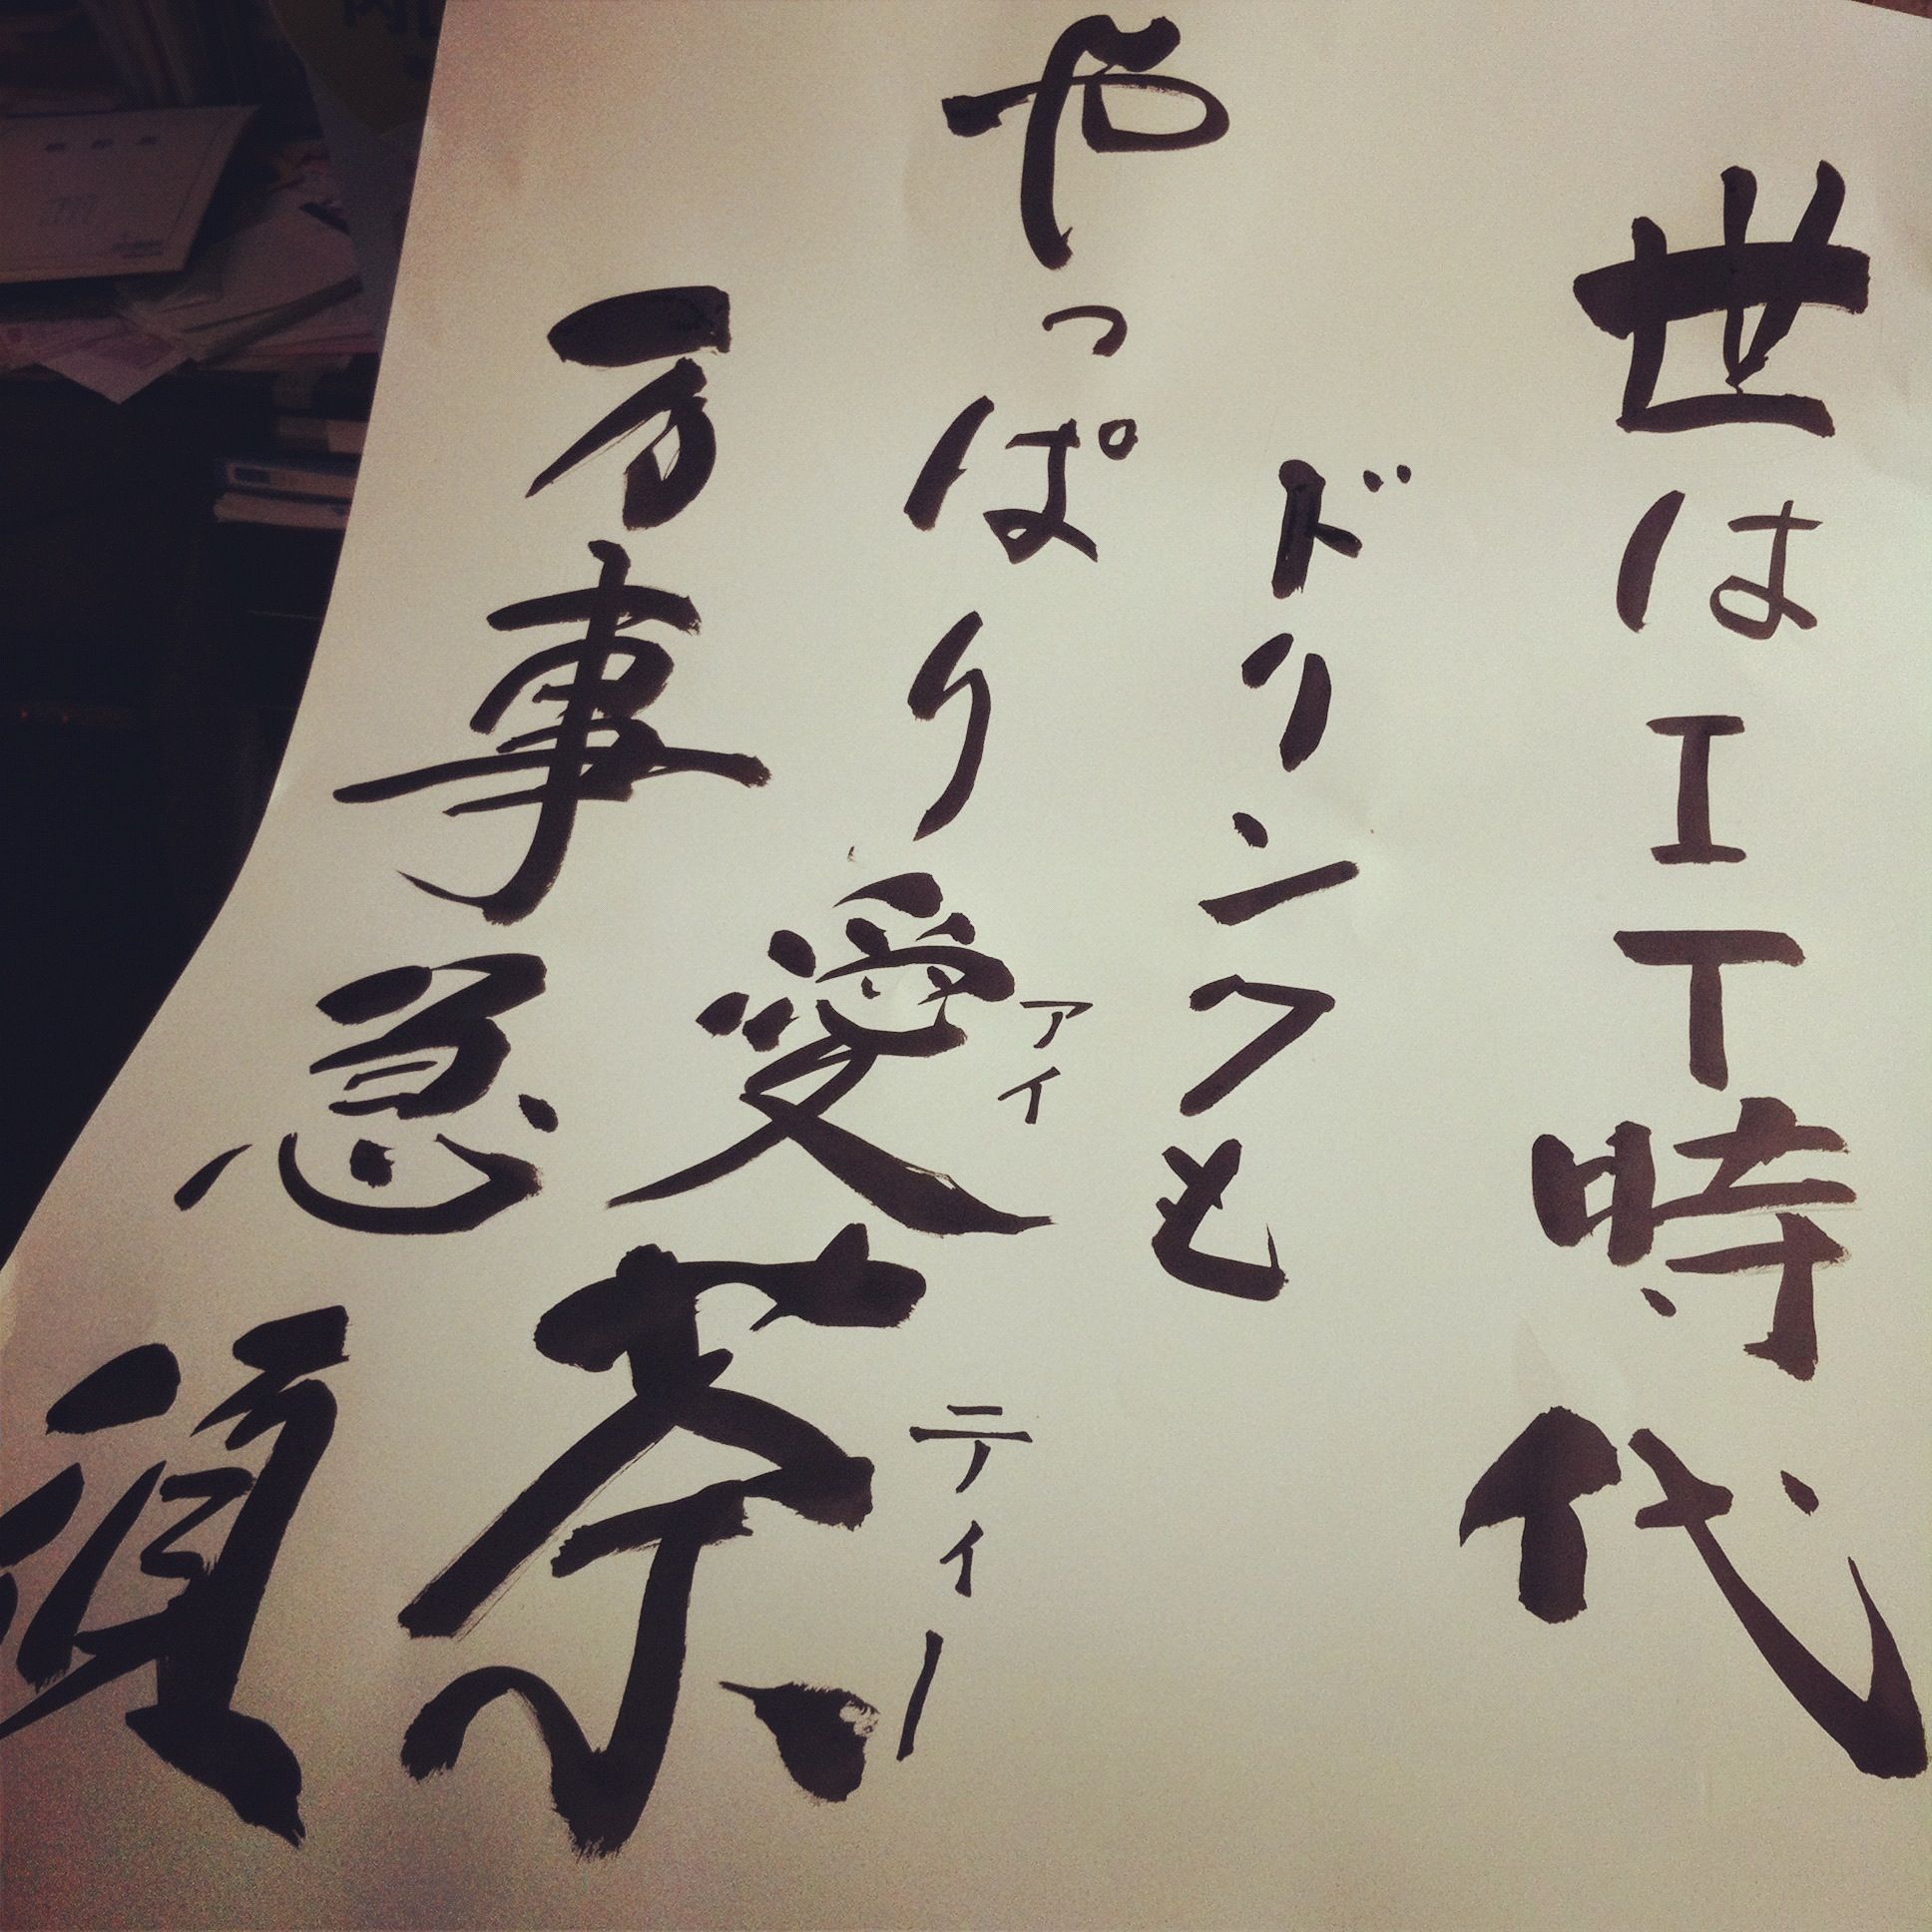 世はIT時代
ドリンクも
やっぱり愛茶
アイ
ティー
万事急須